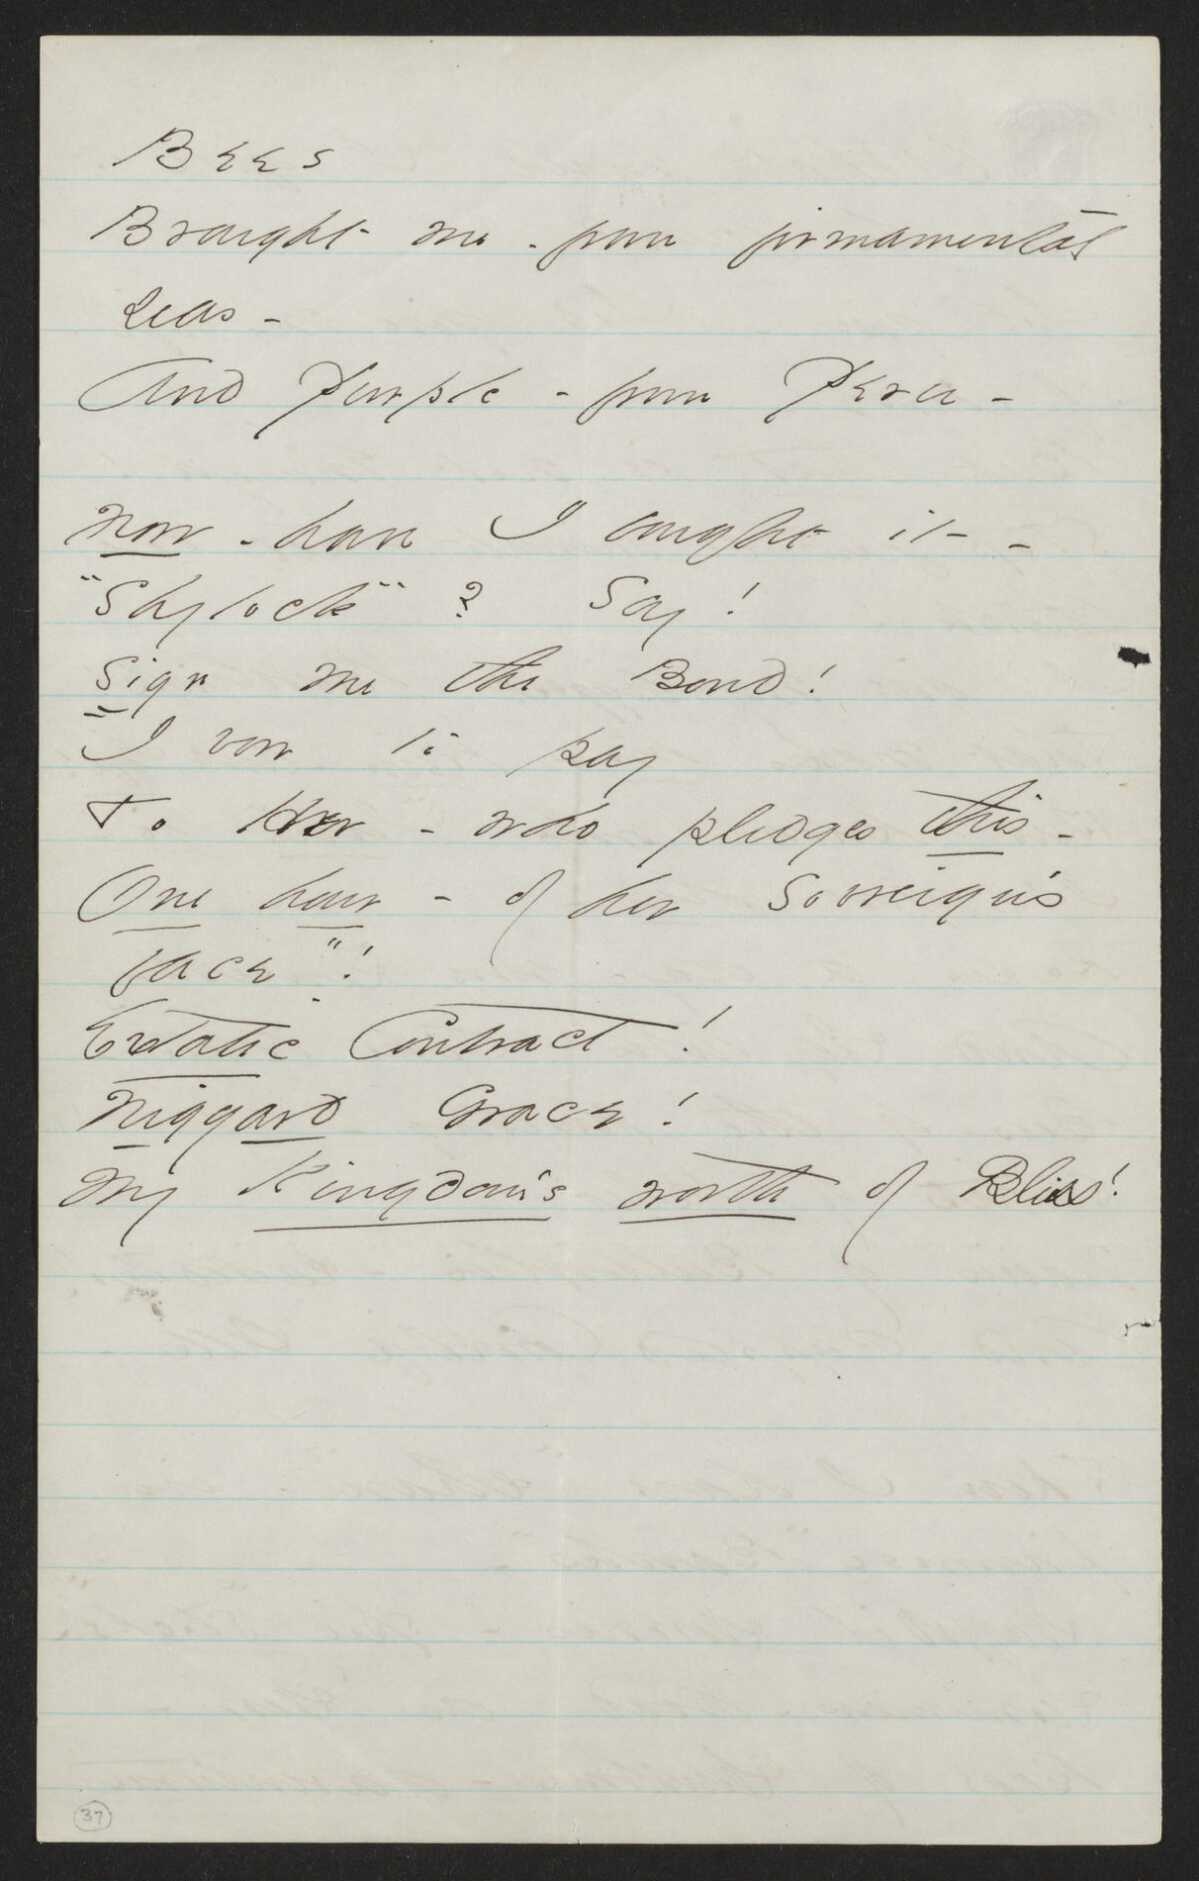 Bees
Brought me - from firmamental
seas -
And Purple - from Peru -
Now - have I bought it -
"Shylock"? Say!
Sign me the Bond!
I vow to pay
To Her - who pledges this -
One hour - of her Sovereign's
face"!
Extatic Contract!
Niggard Grace!
My Kingdom's worth of Bliss!
37